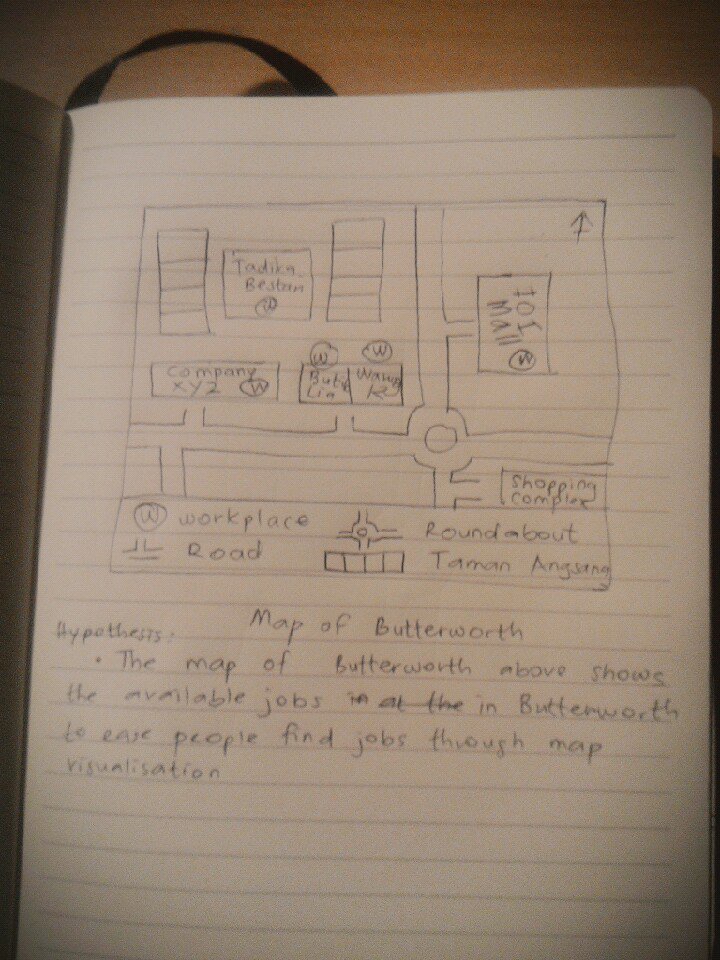 Tadika
Bestari
W
IOI
Mall
W
Company
XYZ W
W
W
Butik
Lia
Shopping
Complex
W workplace
Roundabout
Road
Taman Angsang
Map of Butterworth
Hypothesis:
• The map of Butterworth above shows
the available jobs in at the in Butterworth
to ease people find jobs through map
visualisation